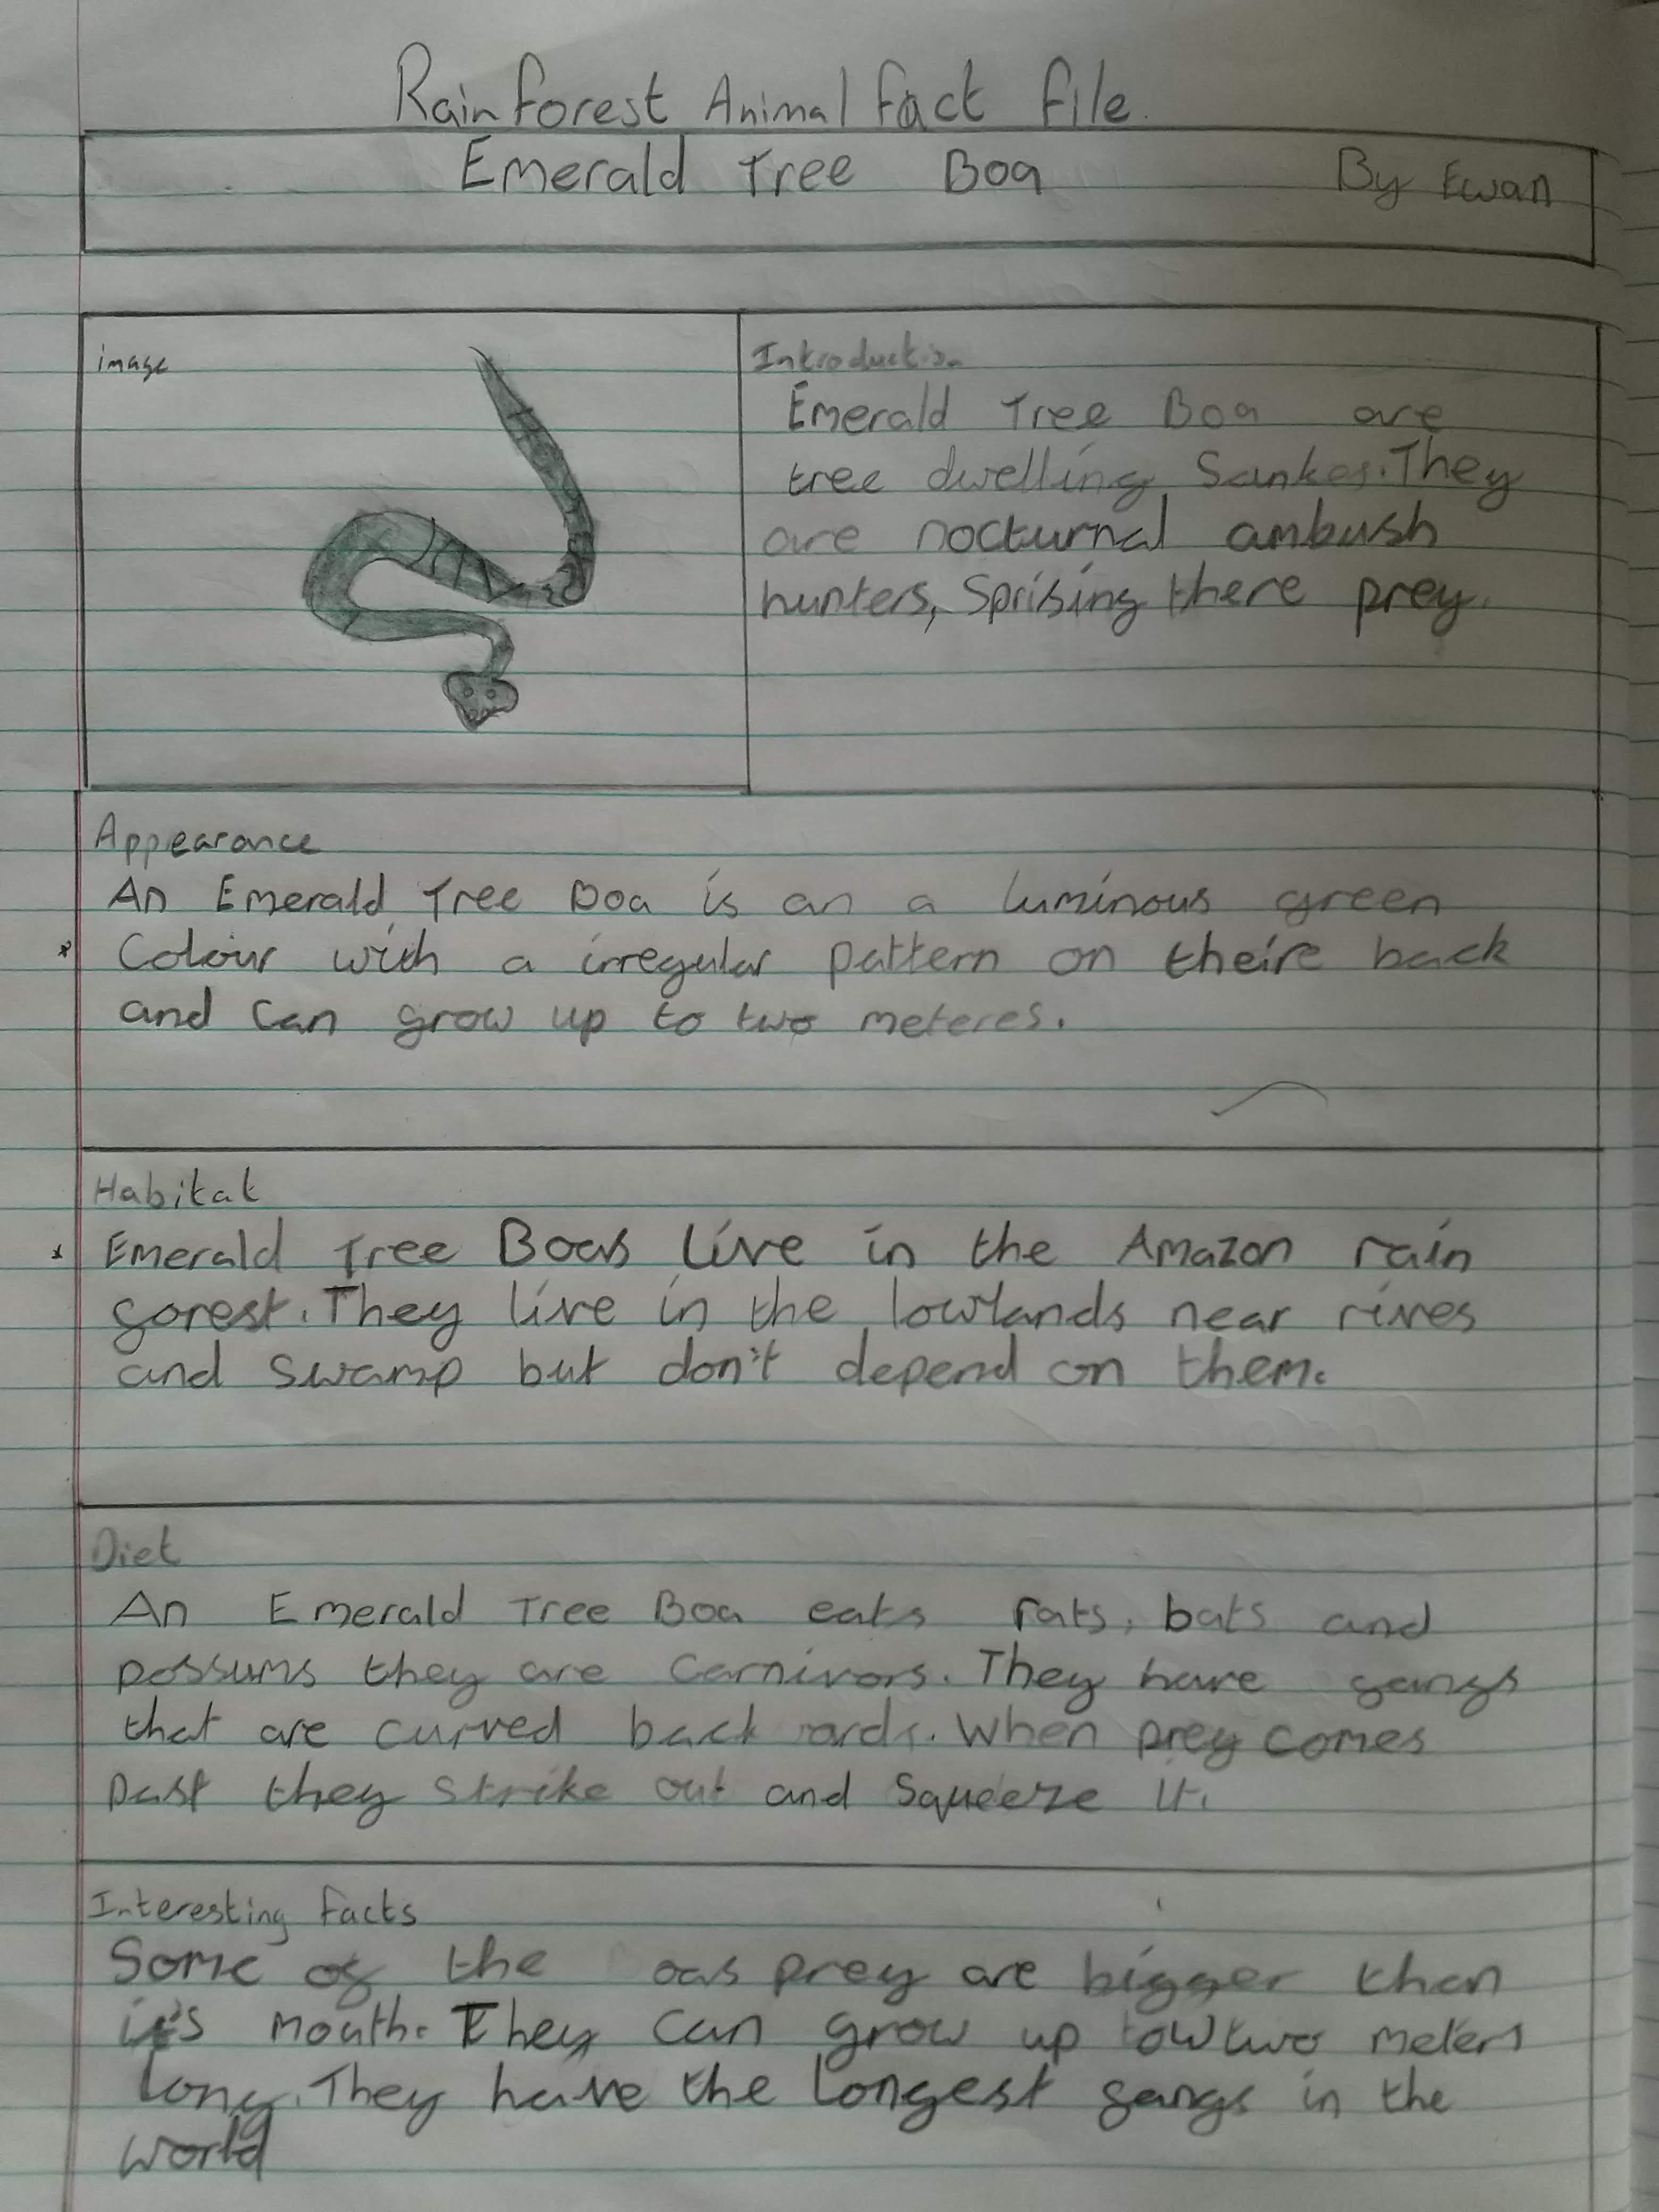 Rainforest Animal fact file.
Emerald Tree Boa By Ewan
image
Introduction
Emerald Tree Boa are
tree dwelling Sankes. They
are nocturnal ambush
hunters, Sprising there prey.
Appearance
An Emerald Tree Boa is an a luminous green
* Colour with a irregular pattern on theire back
and can grow up to two meteres.
Habitat
* Emerald Tree Boas live in the Amazon rain
forest. They live in the lowlands near rives
and swamp but don't depend on them.
Diet
An Emerald Tree Boa eats rats, bats and
possums they are carnivors. They have fangs
that are curved back ards. When prey comes
past they strike out and Squeeze it.
Interesting facts
Some of the oas prey are bigger than
it's mouth. They can grow up two meters
long. They have the longest fangs in the
world